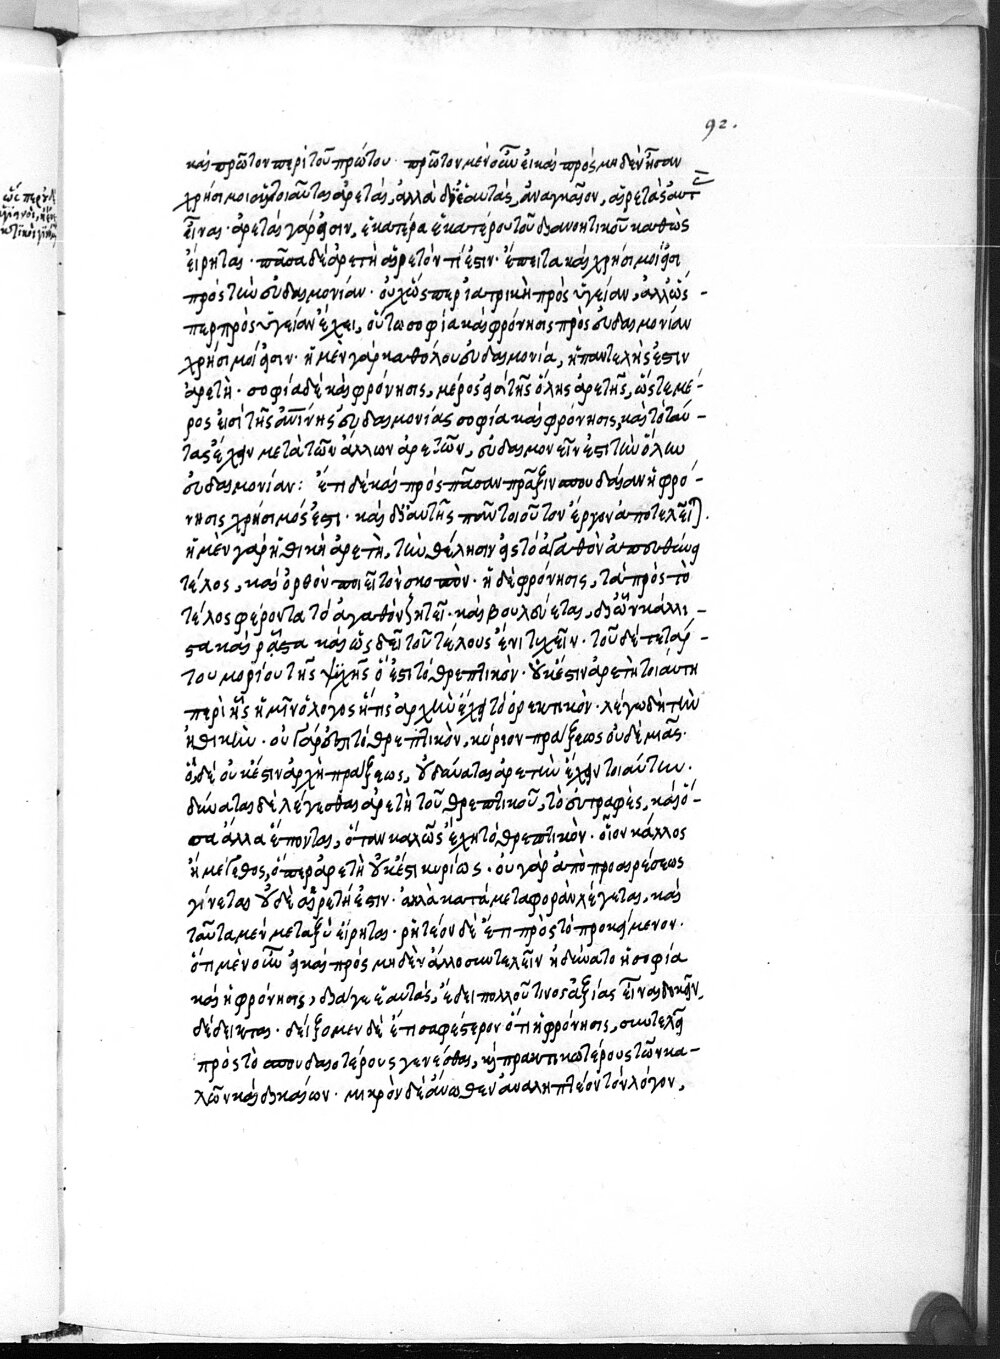 92.
καὶ πρῶτον περὶ τοῦ πρώτου. πρῶτον μὲν οὖν εἰ καὶ πρὸς μηδὲν ἦσαν
χρήσιμοι αἱ τοιαῦται ἀρεταὶ, ἀλλὰ δι' ἑαυτὰς, ἀναγκαῖον, αἱρετὰς
εἶναι. ἀρεταὶ γάρ εἰσιν, ἑκατέρα ἑκατέρου τοῦ διανοητικοῦ καθὼς
εἴρηται. πᾶσα δὲ ἀρετὴ αἱρετόν τί ἐστιν. ἔπειτα καὶ χρήσιμοί εἰσι
πρὸς τὴν εὐδαιμονίαν. οὐχ ὥσπερ ἰατρικὴ πρὸς ὑγείαν, ἀλλ' ὥσ-
περ πρὸς ὑγείαν ἔχει, οὕτω σοφία καὶ φρόνησις πρὸς εὐδαιμονίαν
χρήσιμοί εἰσιν. ἡ μὲν γὰρ καθόλου εὐδαιμονία, ἡ παντελής ἐστιν
ἀρετὴ. σοφία δὲ καὶ φρόνησις, μέρος εἰσὶ τῆς ὅλης ἀρετῆς, ὥστε μέ-
ρος εἰσὶ τῆς εὐδαιμονίας σοφία καὶ φρόνησις, καὶ τὸ ταύ-
τας ἔχειν μετὰ τῶν ἄλλων ἀρετῶν, εὐδαιμονεῖν ἐστι τὴν ὅλην
εὐδαιμονίαν: ἔτι δὲ καὶ πρὸς πᾶσαν πρᾶξιν σπουδαίαν ἡ φρό-
νησις χρήσιμός ἐστι. καὶ δι' αὐτῆς πᾶν τοιοῦτον ἔργον ἀποτελεῖται.
ἡ μὲν γὰρ ἠθικὴ ἀρετὴ, τὴν θέλησιν εἰς τὸ ἀγαθὸν ἀπευθύνει
τέλος, καὶ ὀρθὸν ποιεῖ τὸν σκοπὸν. ἡ δὲ φρόνησις, τὰ πρὸς τὸ
τέλος φέροντα τὸ ἀγαθὸν ζητεῖ. καὶ βουλεύεται, δι' ὧν κάλλι-
στα καὶ ῥᾷστα καὶ ὡς δεῖ τοῦ τέλους ἔνι τυχεῖν. τοῦ δὲ τετάρ-
του μορίου τῆς ψυχῆς ὅ ἐστι τὸ θρεπτικὸν. οὐκ ἔστιν ἀρετὴ τοιαύτη
περὶ ἧς ἡμῖν ὁ λόγος ἥτις ἀρχὴν ἔχει τὸ ὀρεκτικὸν. λέγω δὴ τὴν
ἠθικὴν. οὐ γάρ ἐστι τὸ θρεπτικὸν, κύριον πράξεως οὐδεμιᾶς.
ὃ δὲ οὐκ ἔστιν ἀρχὴ πράξεως, οὐ δύναται ἀρετὴν ἔχειν τοιαύτην.
δύναται δὲ λέγεσθαι ἀρετὴ τοῦ θρεπτικοῦ, τὸ εὐτραφὲς, καὶ ὅ-
σα ἄλλα ἕπονται, ὅταν καλῶς ἔχῃ τὸ θρεπτικὸν. οἷον κάλλος
ἢ μέγεθος, ὅπερ ἀρετὴ οὐκ ἔστι κυρίως. οὐ γὰρ ἀπὸ προαιρέσεως
γίνεται οὐδὲ αἱρετή ἐστιν. ἀλλὰ κατὰ μεταφορὰν λέγεται, καὶ
ταῦτα μὲν μεταξὺ εἴρηται. ῥητέον δὲ ἔτι πρὸς τὸ προκείμενον.
ὅτι μὲν οὖν εἰ καὶ πρὸς μηδὲν ἄλλο συντελεῖν ἠδύνατο ἡ σοφία
καὶ ἡ φρόνησις, διά γε ἑαυτὰς, ἔδει πολλοῦ τινος ἀξίας εἶναι δοκεῖν,
δέδεικται. δείξομεν δὲ ἔτι σαφέστερον ὅτι ἡ φρόνησις, συντελεῖ
πρὸς τὸ σπουδαιοτέρους γενέσθαι, καὶ πρακτικωτέρους τῶν κα-
λῶν καὶ δικαίων. μικρὸν δὲ ἄνωθεν ἀναληπτέον τὸν λόγον.